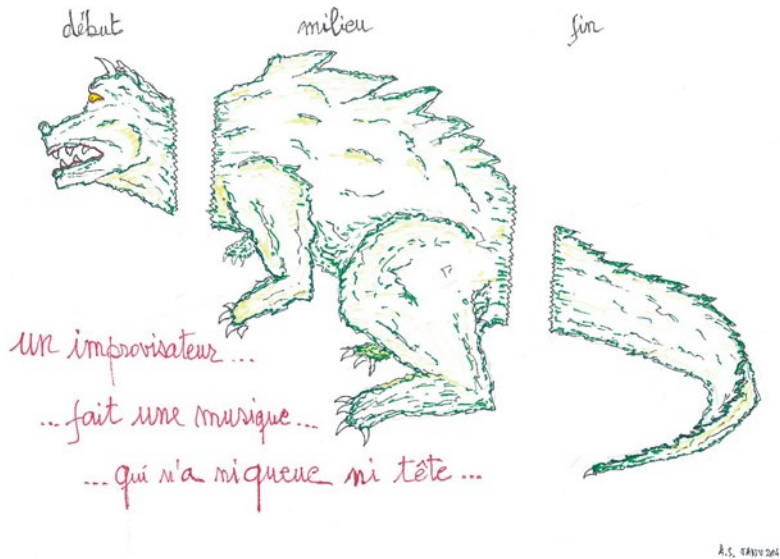 début milieu fin
un improvisateur...
...fait une musique...
...qui n'a ni queue ni tête...
A.S.